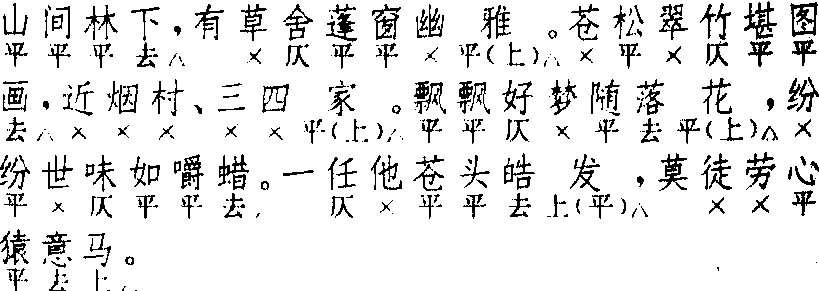 山间林下，有草舍蓬窗幽雅。苍松翠竹堪图
平平平去△ ×仄平平×平(上)△×平×仄平平
画，近烟村、三四家。飘飘好梦随落花，纷
去△××× ××平(上)△平平仄×平去平(上)△×
纷世味如嚼蜡。一任他苍头皓发，莫徒劳心
平×仄平平去△ 仄×平平去上(平)△ ××平
猿意马。
平去上△